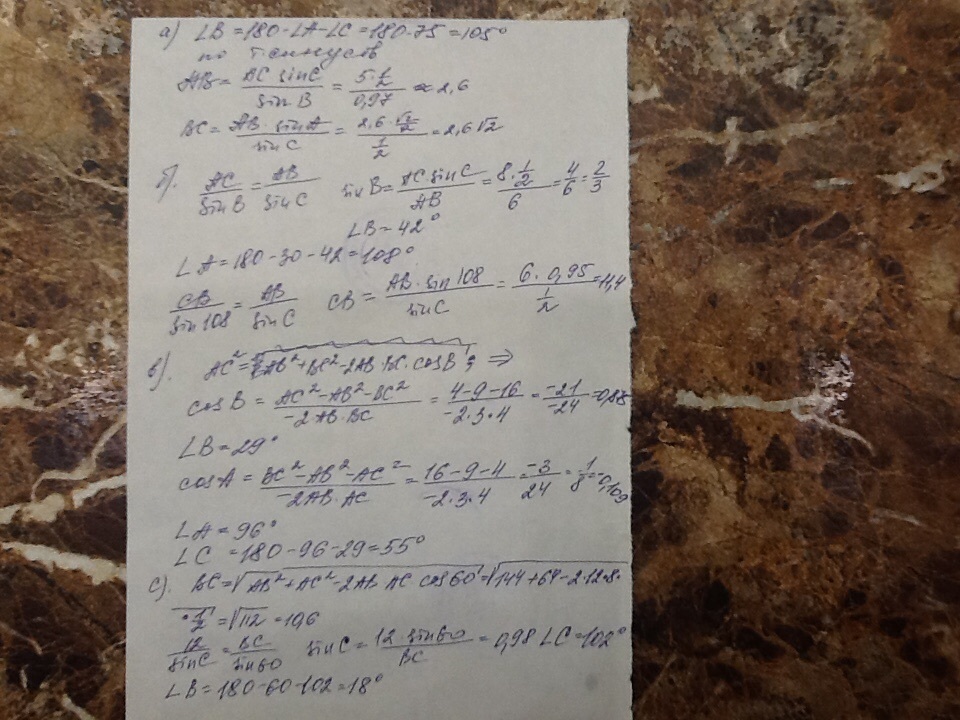 а) ∠B = 180-∠A-∠C = 180-75 = 105°
по т. синусов
AB = AC sinC / sin B = 5·1/2 / 0,97 ≈ 2,6
BC = AB · sinA / sinC = 2,6·√2/2 / 1/2 = 2,6√2
б). AC / sin B = AB / sin C sin B = AC sin C / AB = 8·1/2 / 6 = 4/6 = 2/3
∠B = 42°
∠A = 180-30-42 = 108°
CB / sin 108 = AB / sin C CB = AB · sin 108 / sin C = 6·0,95 / 1/2 = 11,4
в). AC² = AB²+BC²-2AB·BC·cosB; ⇒
cos B = AC²-AB²-BC² / -2AB·BC = 4-9-16 / -2·3·4 = -21 / -24 = 0,88
∠B = 29°
cosA = BC²-AB²-AC² / -2AB·AC = 16-9-4 / -2·3·4 = -3 / 24 = 1/8 = -0,109
∠A = 96°
∠C = 180-96-29 = 55°
с). BC = √AB²+AC²-2AB·AC cos60 = √144+64-2·12·8·
·1/2 = √112 = 10,6
12 / sinC = BC / sin60 sinC = 12·sin60 / BC = 0,98 ∠C = 102°
∠B = 180-60-102 = 18°